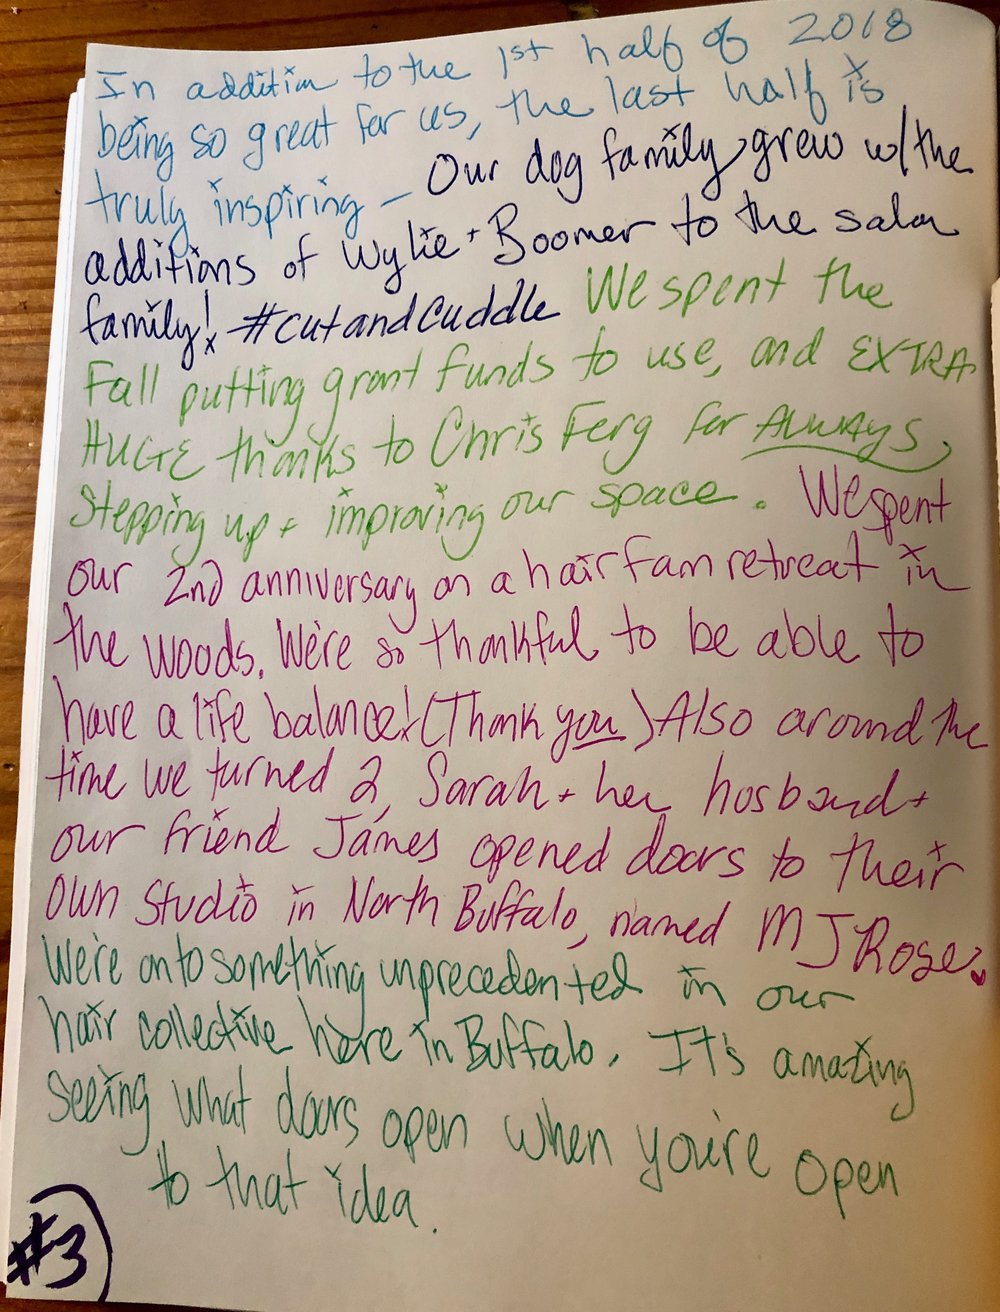 In addition to the 1st half of 2018
being so great for us, the last half is
truly inspiring - Our dog family grew w/the
additions of Wylie + Boomer to the salon
family! #cutandcuddle We spent the
Fall putting grant funds to use, and EXTRA
HUGE thanks to Chris Ferg for ALWAYS
Stepping up + improving our space. We spent
our 2nd anniversary on a hair fam retreat in
the woods. We're so thankful to be able to
have a life balance! (Thank you) Also around the
time we turned 2, Sarah + her husband +
our friend James opened doors to their
own Studio in North Buffalo, named MJ Rose.
We're onto something unprecedented in our
hair collective here in Buffalo. It's amazing
seeing what doors open when you're open
to that idea.
#3